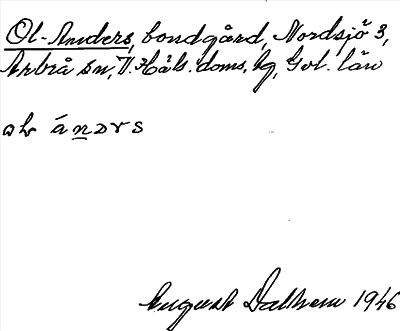 Ol-Anders, bondgård, Nordsjö 3,
Arbrå sn, V. Häls. doms. hg, Gvl. län
ánars
August Dalhem 1946